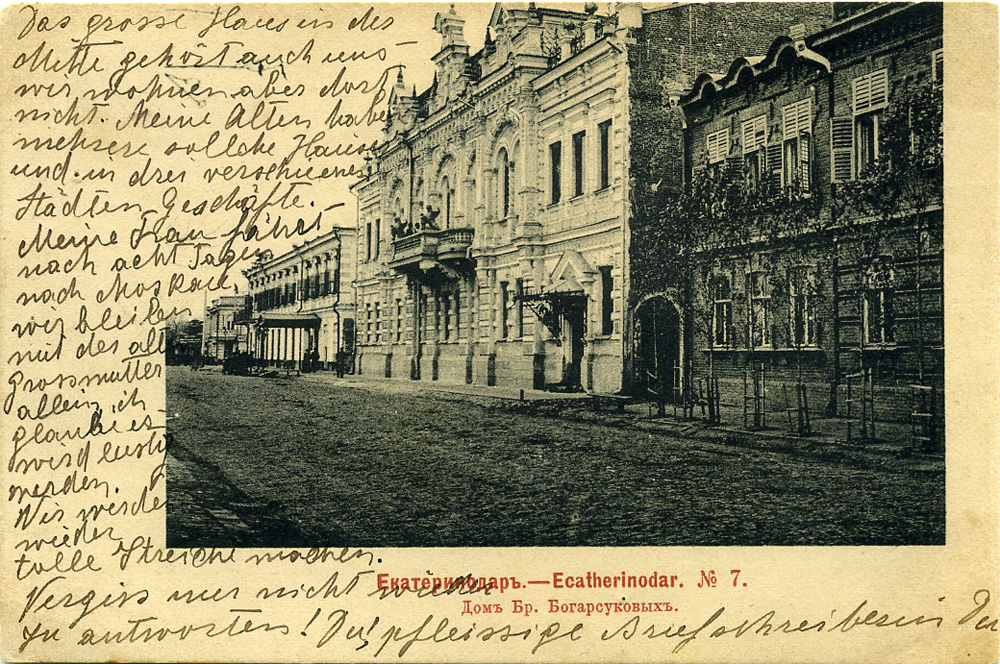 Das grosse Haus in der
Mitte gehört auch uns
wir wohnen aber dort
nicht. Meine Alten habe
mehrere sollche Häuse
und in drei verschienen
Städten Geschäfte.
Meine Frau fährt
nach acht Tagen
nach Moskau,
wir bleiben
mit der alt
Grossmutter
allein, ich
glaube es
wird lustig
werden.
Wir werde
wieder
tolle Streiche machen.
Vergiss nur nicht wieder
zu antworten! Du, pfleissige Briefschreiberin Du
Екатеринодаръ.—Ecatherinodar. № 7.
Домъ Бр. Богарсуковыхъ.